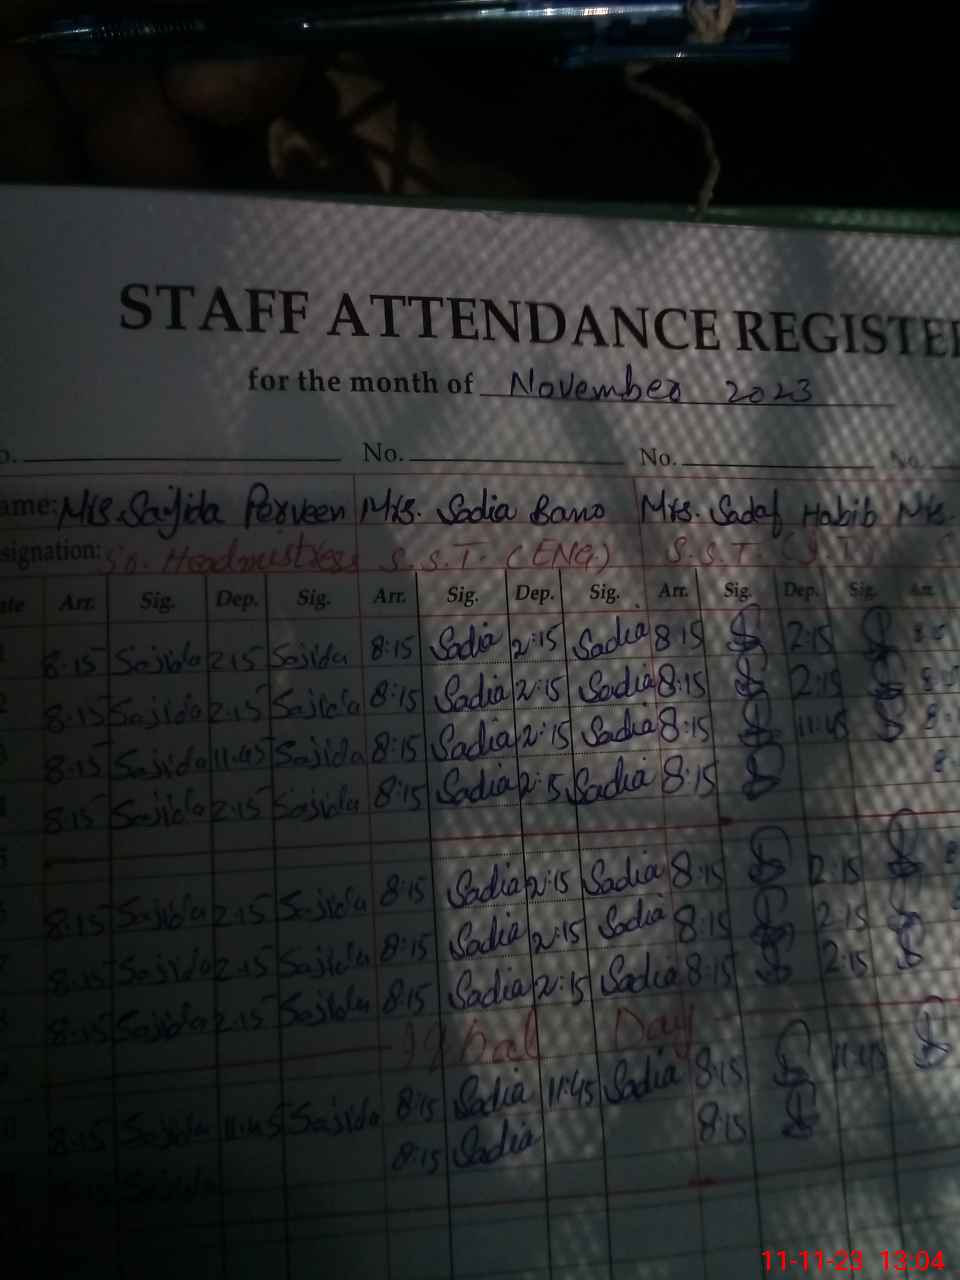 STAFF ATTENDANCE REGISTE
for the month of November 2023
o. No. No. No.
ame: Mrs. Sajida Perveen Mrs. Sadia Bano Mrs. Sadaf Habib Mrs.
signation: Sn. Headmistress S.S.T. (ENG) S.S.T.
ate Arr. Sig. Dep. Sig. Arr. Sig. Dep. Sig. Arr. Sig. Dep. Sig. Arr.
8:15 Sajida 2:15 Sajida 8:15 Sadia 2:15 Sadia 8:15 2:15
2 8:15 Sajida 2:15 Sajida 8:15 Sadia 2:15 Sadia 8:15 2:15
8:15 Sajida 11:45 Sajida 8:15 Sadia 2:15 Sadia 8:15 11:45
8:15 Sajida 2:15 Sajida 8:15 Sadia 2:15 Sadia 8:15
8:15 Sajida 2:15 Sajida 8:15 Sadia 2:15 Sadia 8:15 2:15
8:15 Sajida 2:15 Sajida 8:15 Sadia 2:15 Sadia 8:15 2:15
8:15 Sajida 2:15 Sajida 8:15 Sadia 2:15 Sadia 8:15 2:15
Iqbal Day
8:15 Sajida 11:45 Sajida 8:15 Sadia 11:45 Sadia 8:15 11:45
Sajida 8:15 Sadia 8:15
11-11-23 13:04